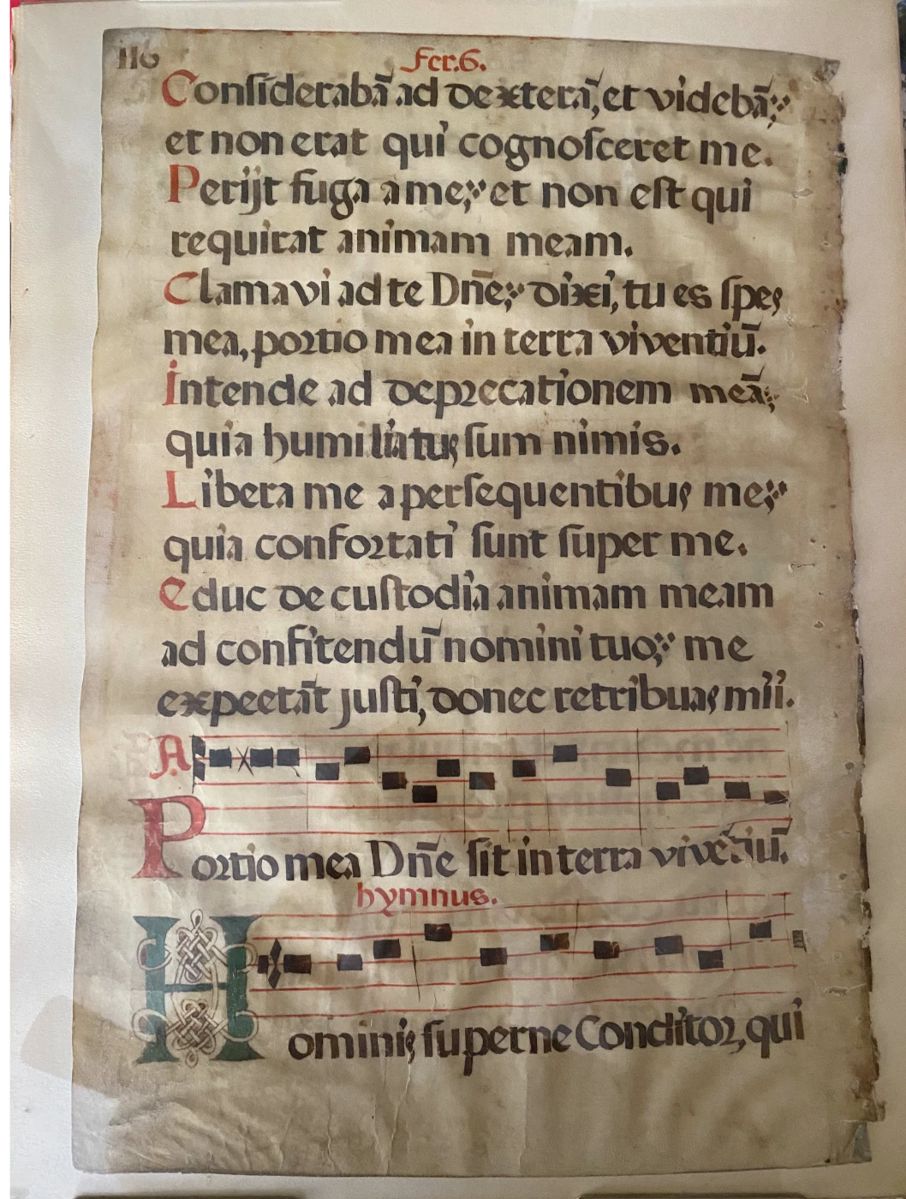 116
Fer.6.
Considerabā ad dexterā, et videbā;
et non erat qui cognosceret me.
Perijt fuga a me; et non est qui
requirat animam meam.
Clamavi ad te Dn̄e; dixi, tu es spes
mea, portio mea in terra viventiū.
Intende ad deprecationem meā;
quia humiliatus sum nimis.
Libera me a persequentibus me;
quia confortati sunt super me.
Educ de custodia animam meam
ad confitendū nomini tuo; me
expectāt justi, donec retribuas mii.
A
Portio mea Dn̄e sit in terra vivētiū.
hymnus.
Hominis superne Conditor, qui